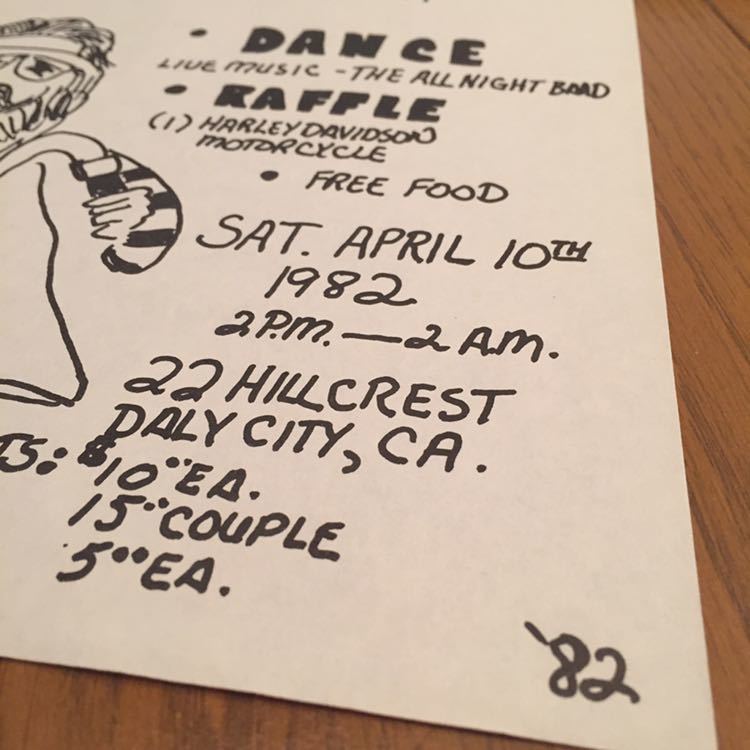 • DANCE
LIVE MUSIC - THE ALL NIGHT BAND
• RAFFLE
(1) HARLEY DAVIDSON
MOTORCYCLE
• FREE FOOD
SAT. APRIL 10TH
1982
2 P.M. — 2 A.M.
22 HILLCREST
DALY CITY, CA.
TS: $10°° EA.
15°° COUPLE
5°° EA.
'82